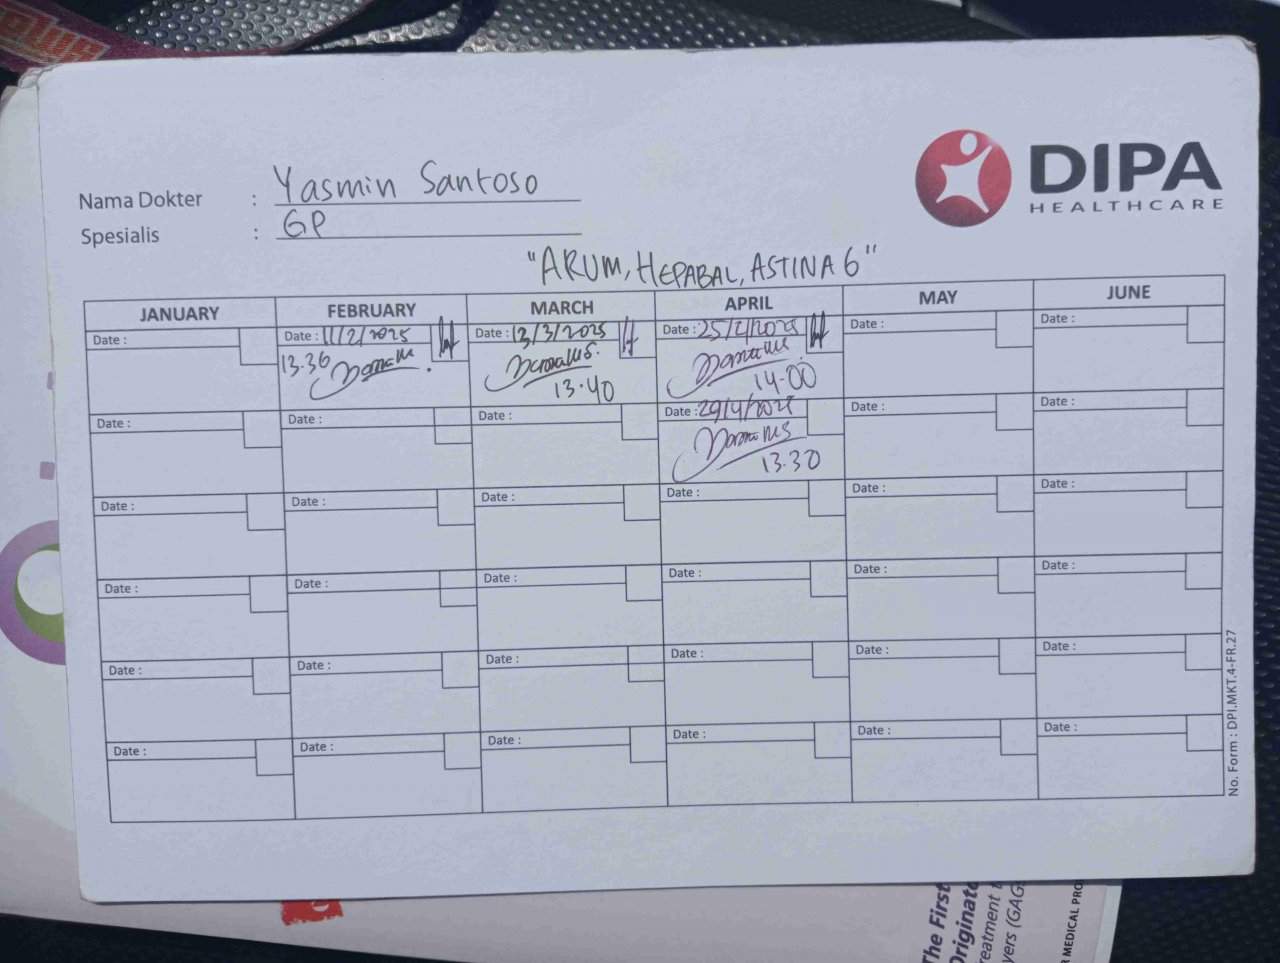 DIPA
HEALTHCARE
Nama Dokter : Yasmin Santoso
Spesialis : GP
"ARUM, HEPABAL, ASTINA 6"
JANUARY FEBRUARY MARCH APRIL MAY JUNE
Date : Date : 11/2/2025 Date : 13/3/2025 Date : 25/4/2025 Date : Date :
13.36 13.40 14.00
Date : Date : Date : Date : 29/4/2025 Date : Date :
13.30
Date : Date : Date : Date : Date : Date :
Date : Date : Date : Date : Date : Date :
Date : Date : Date : Date : Date : Date :
Date : Date : Date : Date : Date : Date :
No. Form : DPI.MKT.4-FR.27
The First
Originato
reatment t
yers (GAGs
R MEDICAL PRO